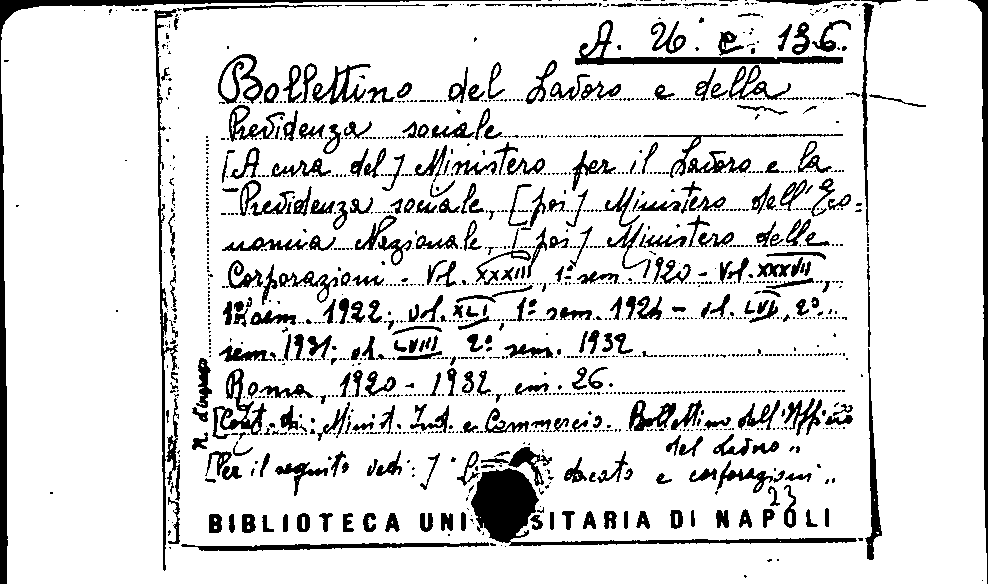 A. 26. C. 136.
Bollettino del Lavoro e della
Previdenza sociale
[A cura del] Ministero per il Lavoro e la
Previdenza sociale, [poi] Ministero dell'Eco=
nomia Nazionale, [poi] Ministero delle
Corporazioni - Vol. XXXIII, 1º sem. 1920 - Vol. XXXVII,
1º sem. 1922; vol. XLI, 1º sem. 1924 - vol. LVI, 2º
sem. 1931; vol. LVIII, 2º sem. 1932.
Roma, 1920 - 1932, cm. 26.
N. d'ingresso
[Cont. di: Minist. Ind. e Commercio. Bollettino dell'Ufficio
del Lavoro „
[Per il seguito vedi:] dacato e corporazioni „
23
BIBLIOTECA UNI SITARIA DI NAPOLI